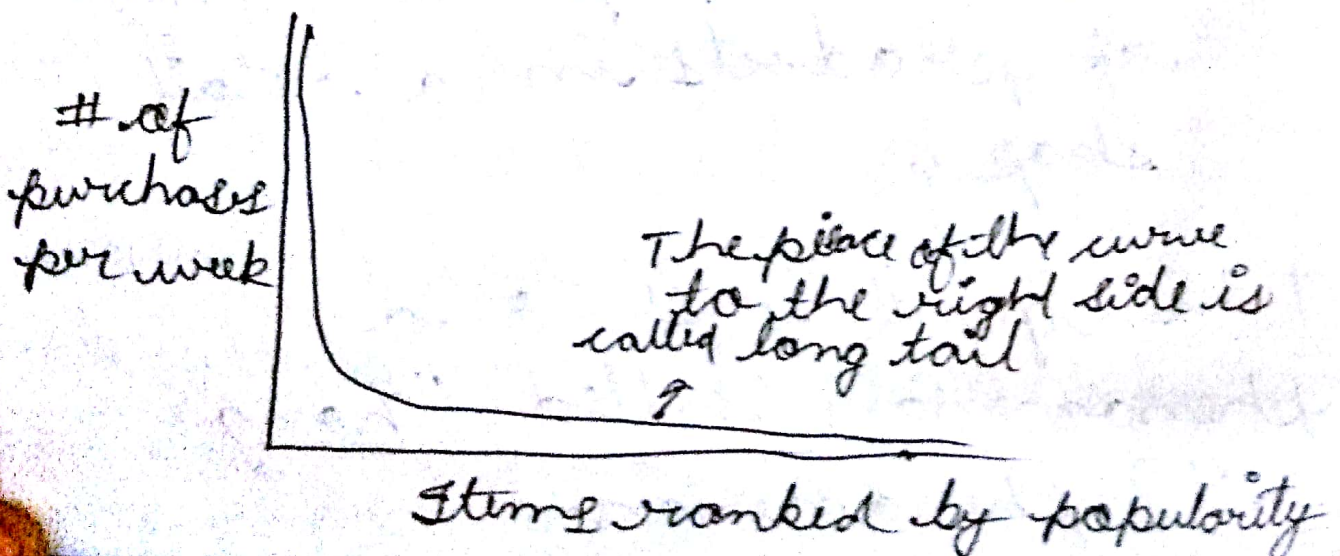 # of
purchases
per week
The piece of the curve
to the right side is
called long tail
Items ranked by popularity